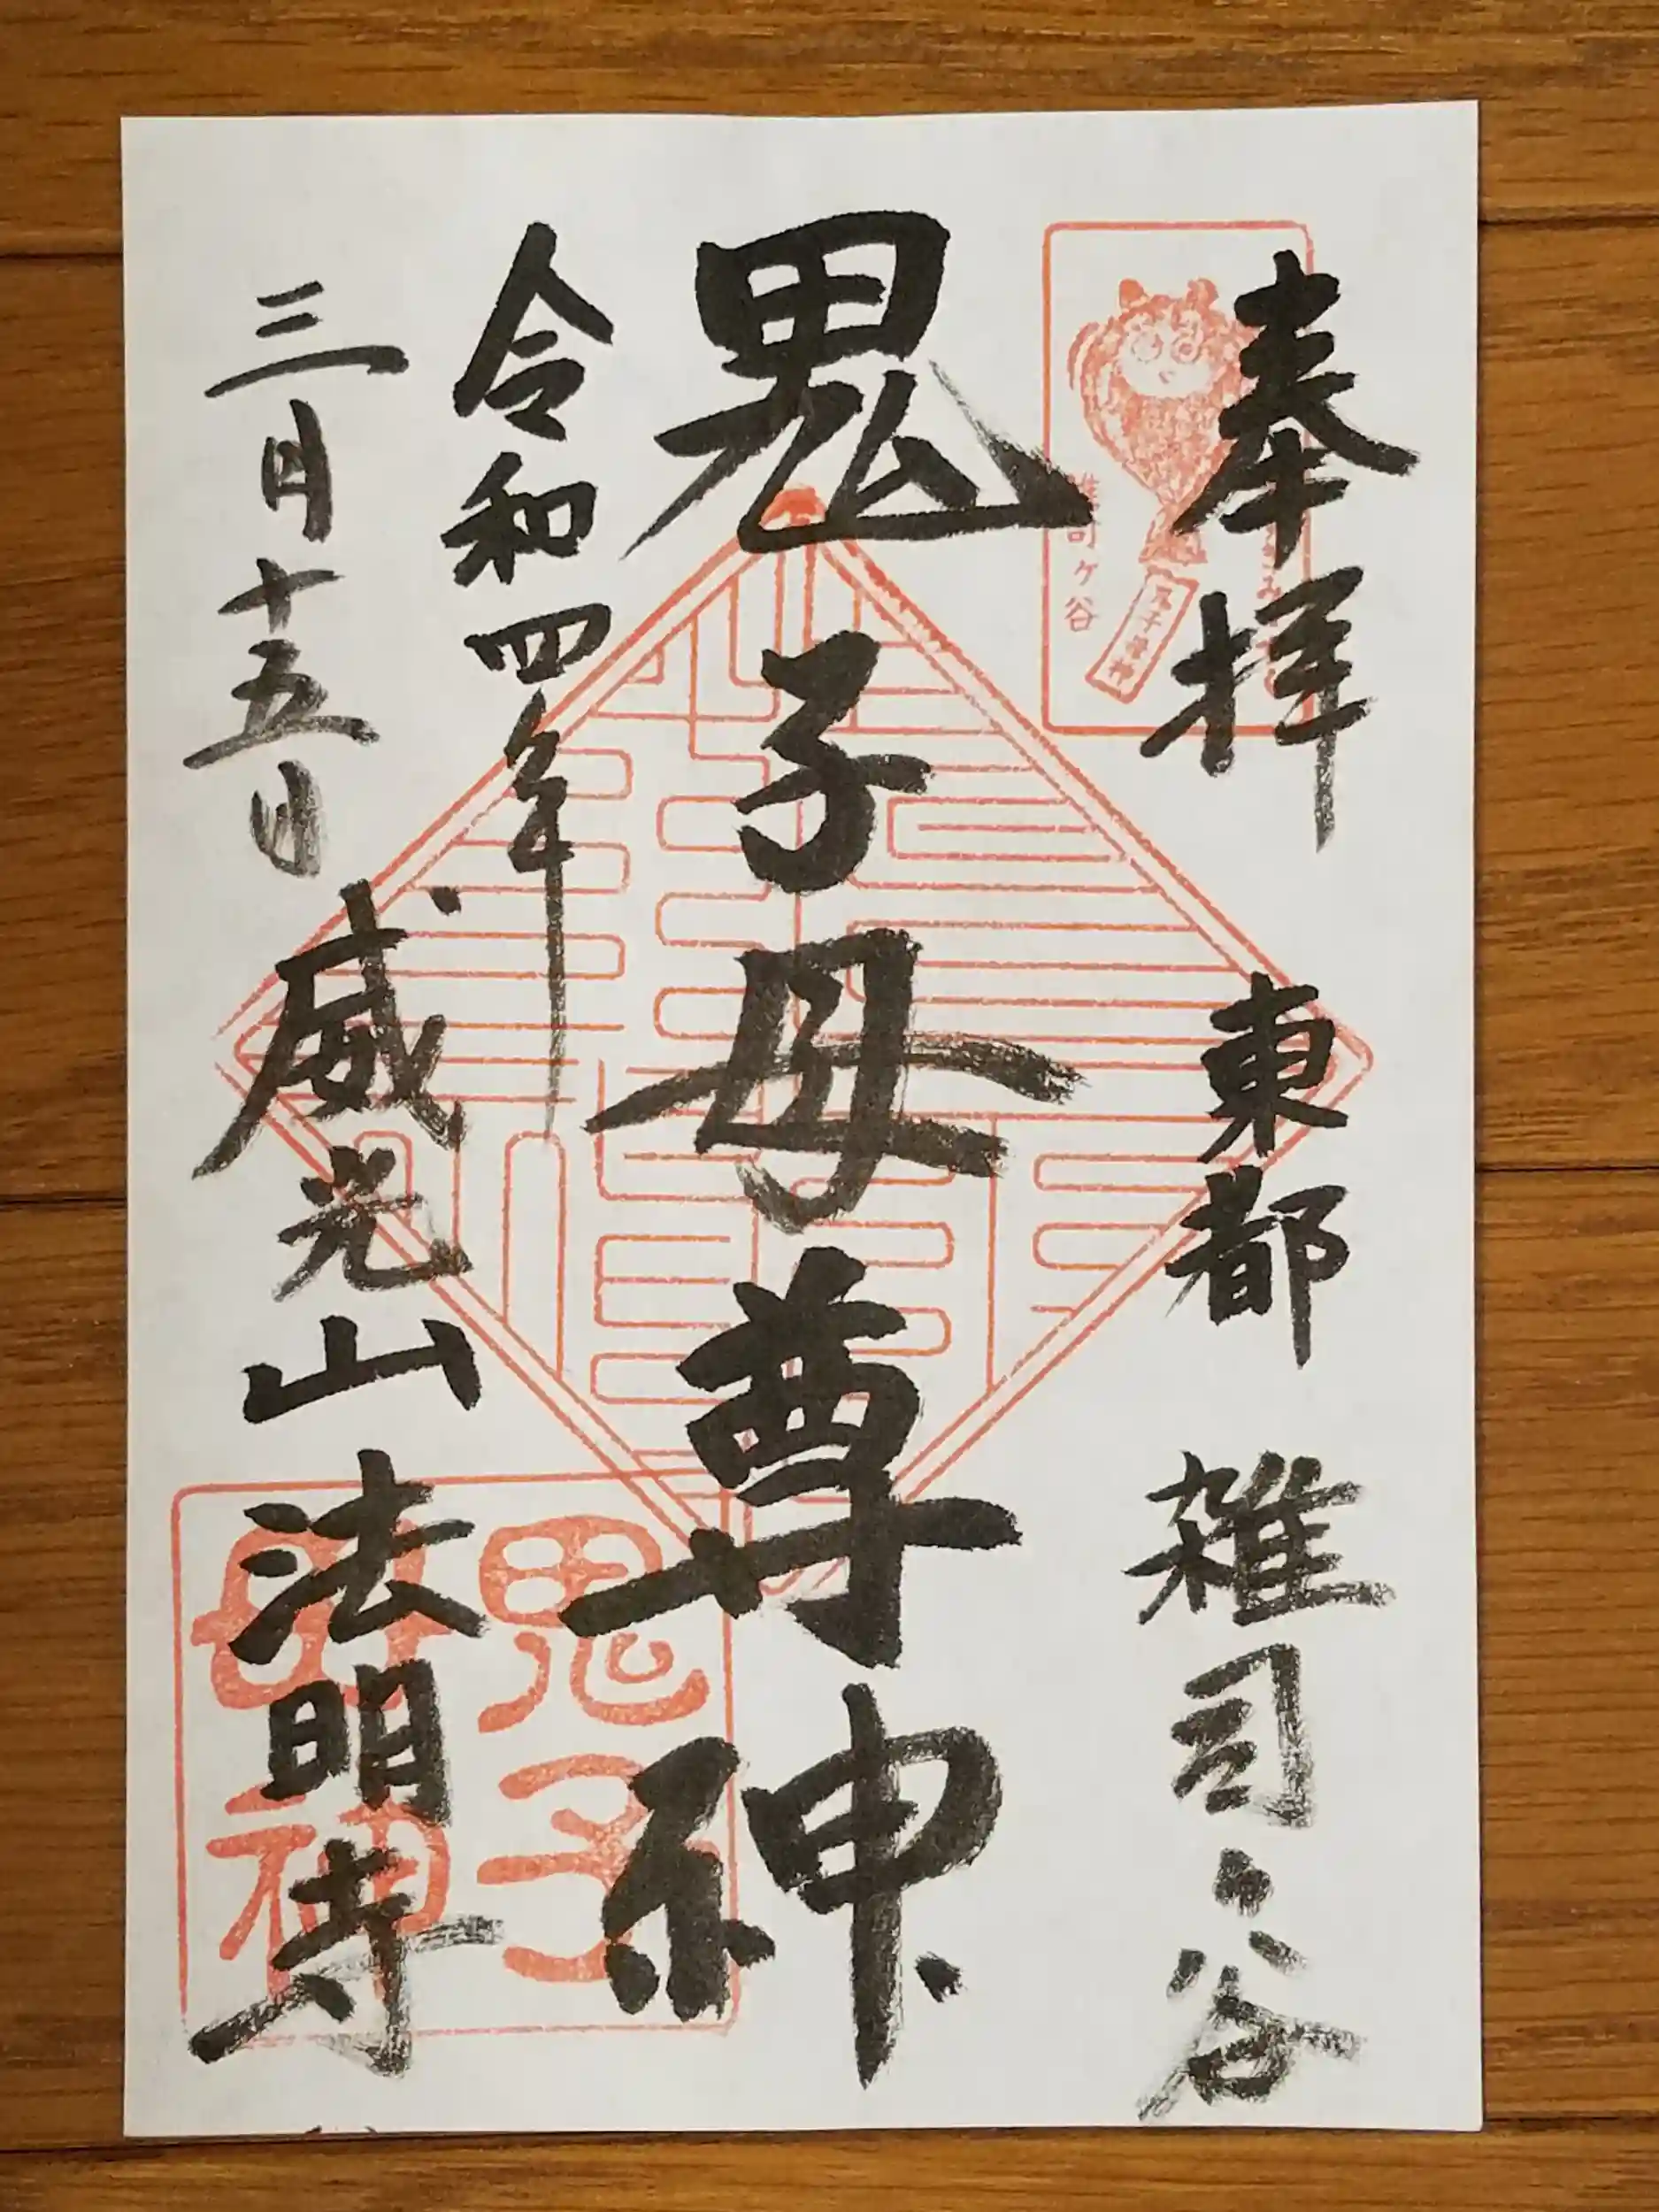 奉拝 東都 雑司ヶ谷
鬼子母尊神
令和四年
三月十五日
威光山 法明寺
雑司ヶ谷
鬼子
母神